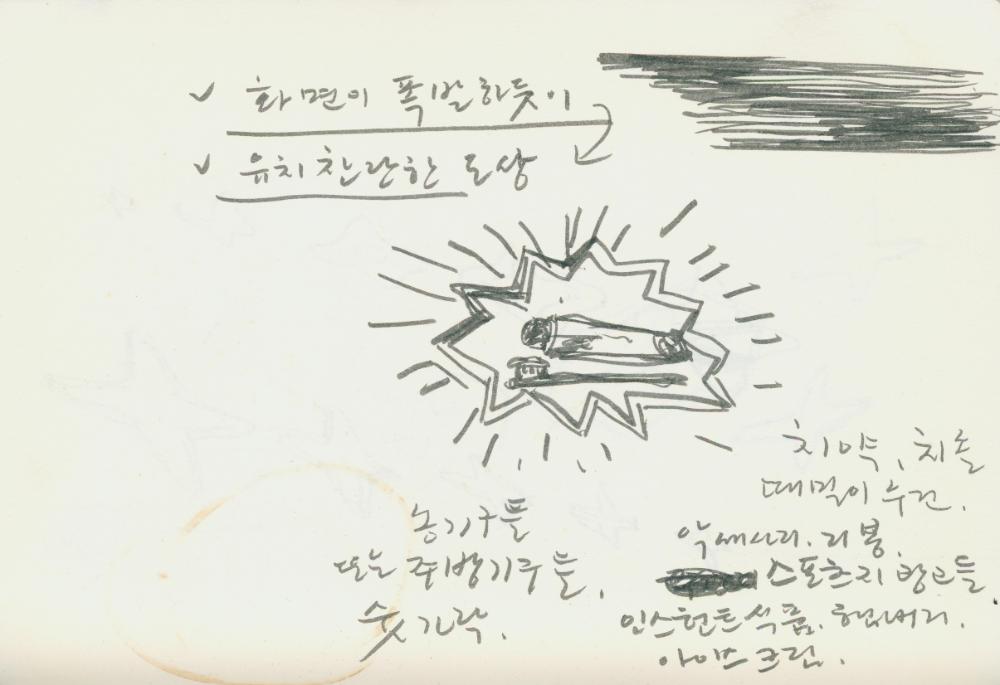 ✓ 화면이 폭발하듯이
✓ 유치찬란한 도상
치약, 치솔
때밀이 수건.
악세사리. 리봉.
스포츠지 광고들
인스턴트식품. 햄버거.
아이스크림.
농기구들
또는 주방기구들,
숫가락.